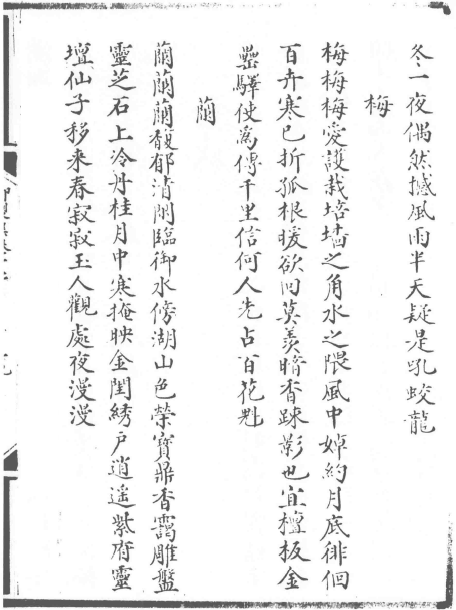 冬一夜偶然撼風雨半天疑是吼蛟龍
梅
梅梅梅愛護栽培墻之角水之隈風中婥約月底徘徊
百卉寒已折孤根暖欲囘莫羨暗香踈影也宜檀板金
罍驛使寄傳千里信何人先占百花魁
蘭
蘭蘭蘭馥郁清閒臨御水傍湖山色榮寶鼎香靄雕盤
靈芝石上冷丹桂月中寒掩映金閨綉戶逍遥紫府靈
壇仙子移来春寂寂玉人觀處夜漫漫